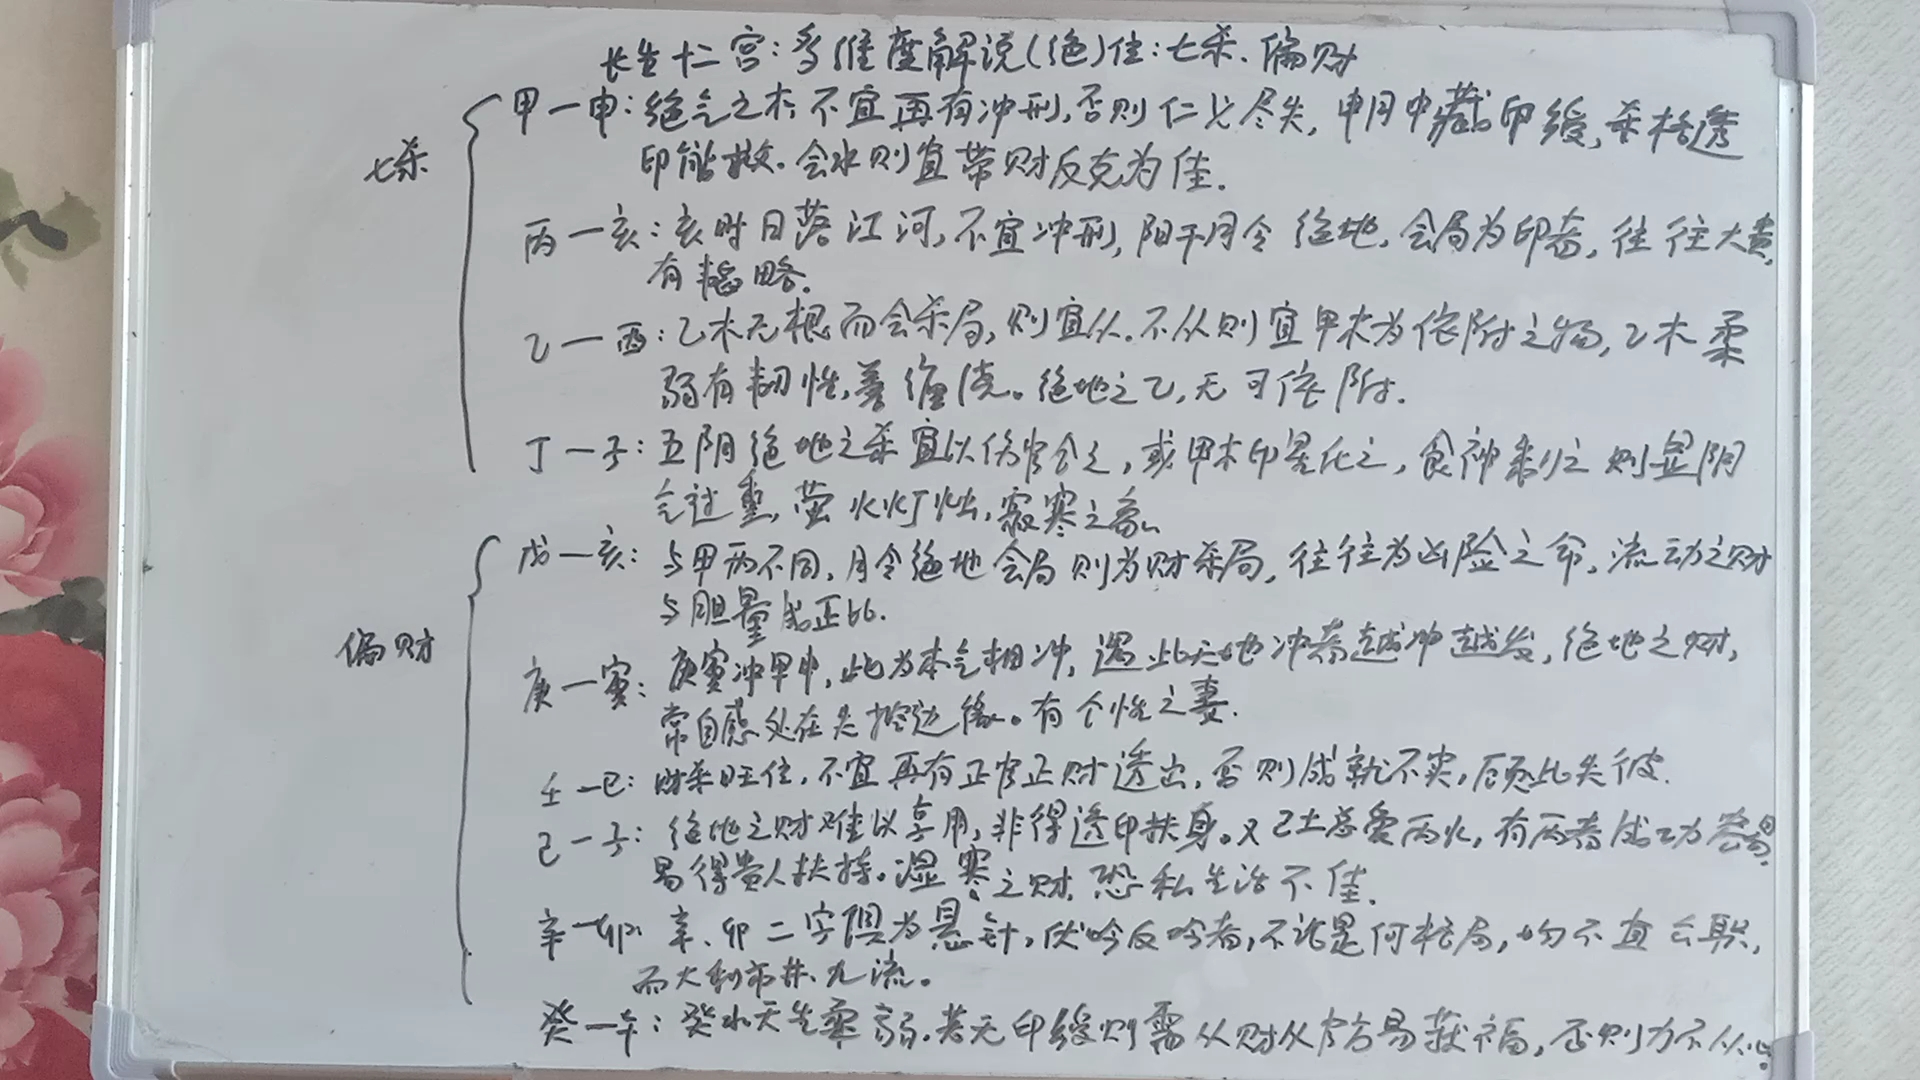 长生十二宫:多维度解说(绝)位:七杀、偏财
七杀
甲一申:绝气之木,不宜再有冲刑,否则仁义尽失,申月中藏印绶,杀格透
印能救。会水则宜带财反克为佳.
丙一亥:亥时日落江河,不宜冲刑,阳干月令绝地,会局为印者,往往大贵,
有韬略.
乙一酉:乙木无根而会杀局,则宜从.不从则宜甲木为依附之物,乙木柔
弱有韧性,善缠绕。绝地之乙,无可依附.
丁一子:五阴绝地之杀宜以伤官合之,或甲木印星化之,食神制之则显阴
气过重,萤火灯烛,寂寒之象。
偏财
戊一亥:与甲丙不同,月令绝地会局则为财杀局,往往为凶险之命,流动之财
与胆量成正比.
庚一寅:庚寅冲甲申,此为本气相冲,遇此天地冲者越冲越发,绝地之财,
常自感处在失控边缘。有个性之妻.
壬一巳:财杀旺位,不宜再有正官正财透出,否则成就不实,顾此失彼.
己一子:绝地之财难以享用,非得透印扶身。又己土总爱丙火,有丙者成功容易,
易得贵人扶持。湿寒之财,恐私生活不佳.
辛一卯:辛、卯二字俱为悬针,伏吟反吟者,不论是何格局,均不宜公职,
而大利市井、九流。
癸一午:癸水天生柔弱.若无印绶则需从财从官方易获福,否则力不从心.